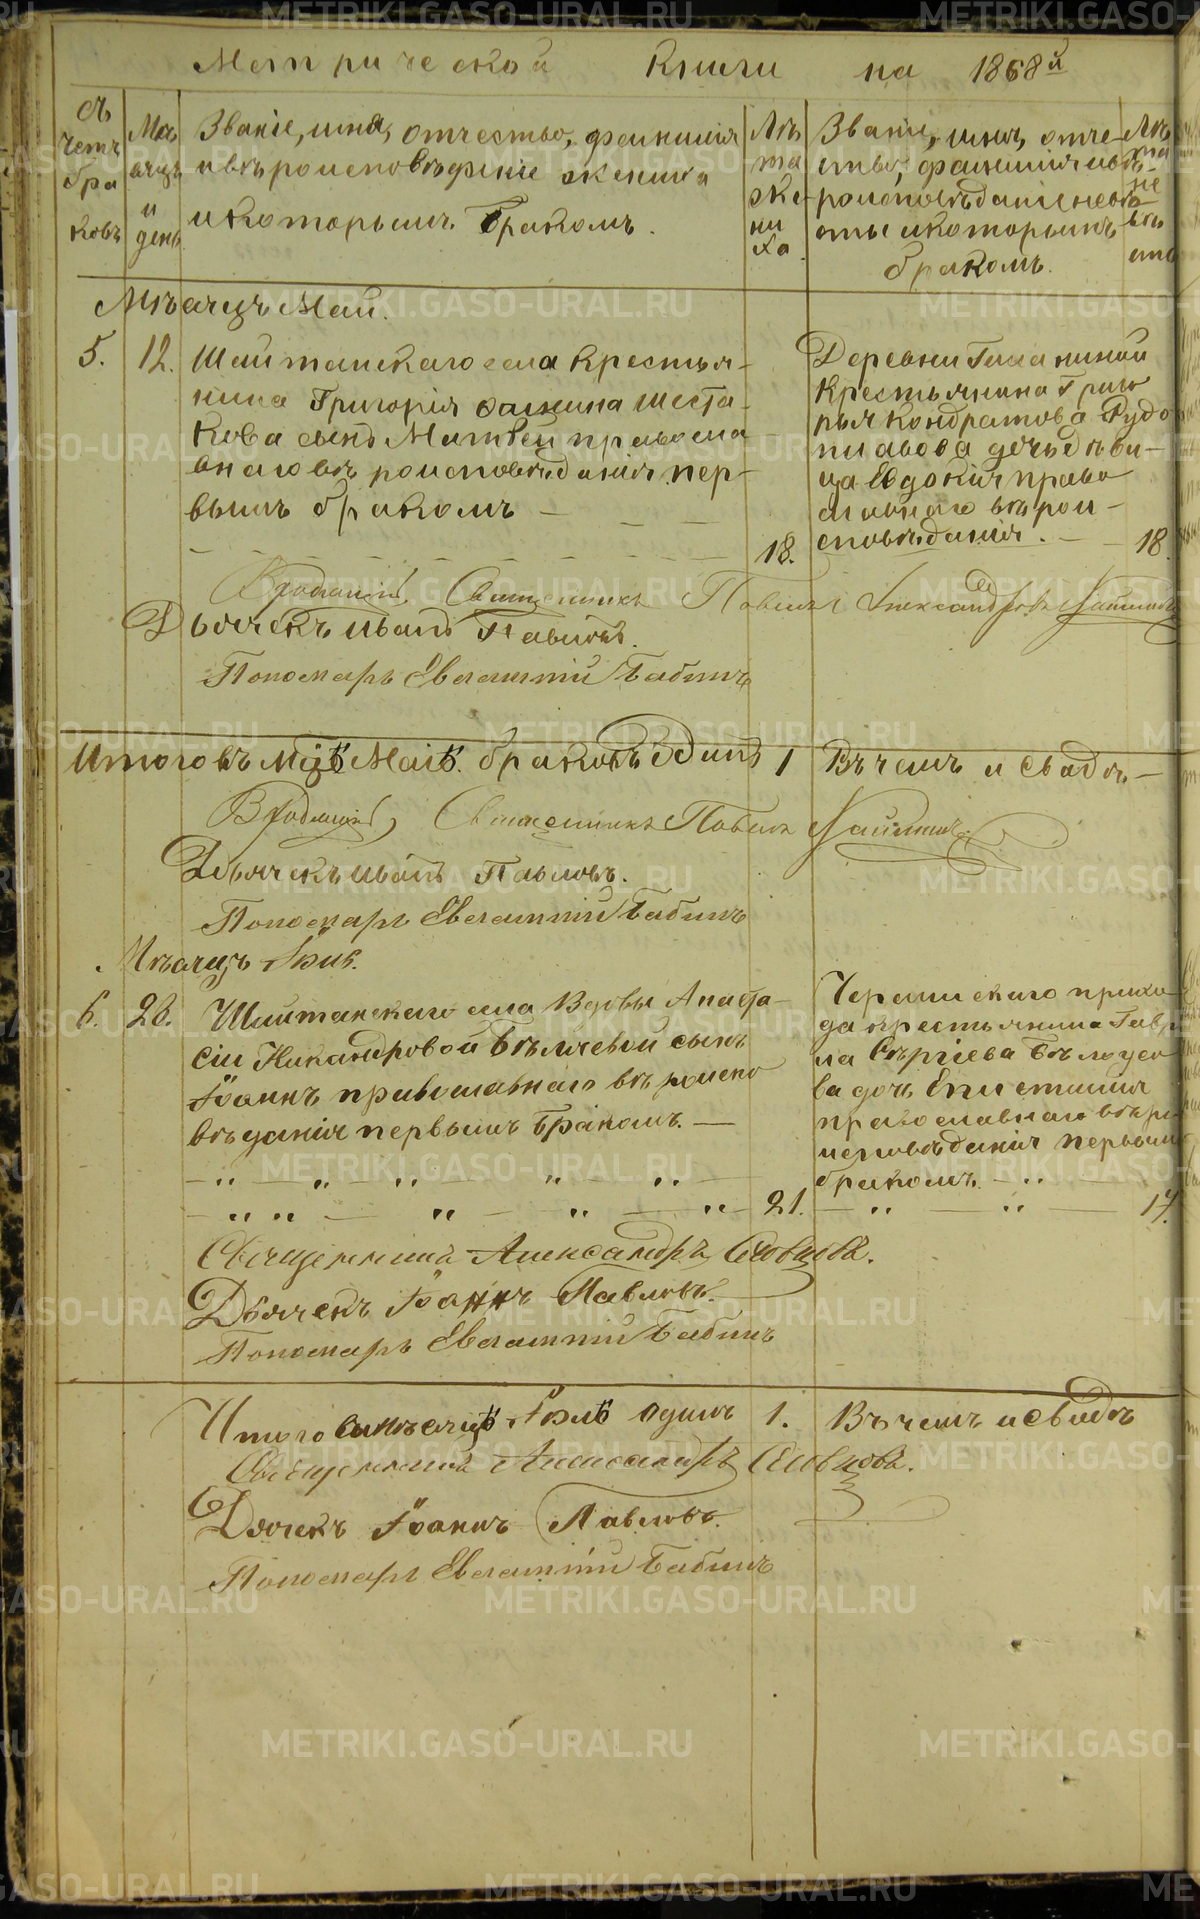 Метрической Книги на 1868й
Счетъ браковъ
Мѣсяцъ и день
Званіе, имя, отчество, фамилія
и вѣроисповѣданіе жениха
и которымъ бракомъ.
Лѣта жениха
Званіе, имя, отче-
ство, фамилія и вѣ-
роисповѣданіе невѣ-
сты и которымъ
бракомъ.
Лѣта невѣсты
Мѣсяцъ Май.
5. 12.
Шайтанскаго села Крестья-
нина Григорія
Шеста-
кова сынъ Матвей правосла
внаго вѣроисповѣданія пер-
вымъ бракомъ
18.
Деревни
Крестьянина Григо
рья Кондратова Рудо
дочь дѣви-
ца Евдокія право
славнаго вѣрои-
споведанія.
18.
Священникъ Павелъ Александровъ
Дьячекъ Иванъ Павловъ.
Пономарь Евлампій Бабинъ
Итого въ Мцѣ Маіѣ браковъ Одинъ 1 Въ чемъ и свидѣ-
Священникъ Павелъ
Дьячекъ Иванъ Павловъ.
Пономарь Евлампій Бабинъ
Мѣсяцъ Іюль.
6. 28.
Шайтанскаго села Вдовы Анаста-
сіи Никандровой Бѣляевой сынъ
Іоаннъ православнаго вѣроиспо
вѣданія первымъ бракомъ.
21.
прихо
да крестьянина Гаврі
ла Сергіева Бѣлоусо
ва дочь Епистимія
православнаго вѣро
исповѣданія первымъ
бракомъ.
17.
Священникъ Александръ
Дьячекъ Іоаннъ Павловъ.
Пономарь Евлампій Бабинъ
Итого въ мѣсяцѣ Іюлѣ одинъ 1. Въ чемъ и свидѣ
Священникъ Александръ
Дьячекъ Іоаннъ Павловъ.
Пономарь Евлампій Бабинъ
METRIKI.GASO-URAL.RU